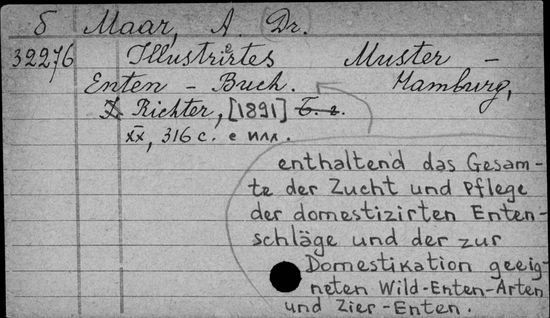 б Maar, A. Dr.
32276 Illustrirtes Muster-
Enten-Buch. Hamburg,
Richter, [1891] Б. г.
XX, 316 с. с илл.
enthaltend das Gesam-
te der Zucht und Pflege
der domestizirten Enten-
schläge und der zur
Domestikation geeig-
neten Wild-Enten-Arten
und Zier-Enten.